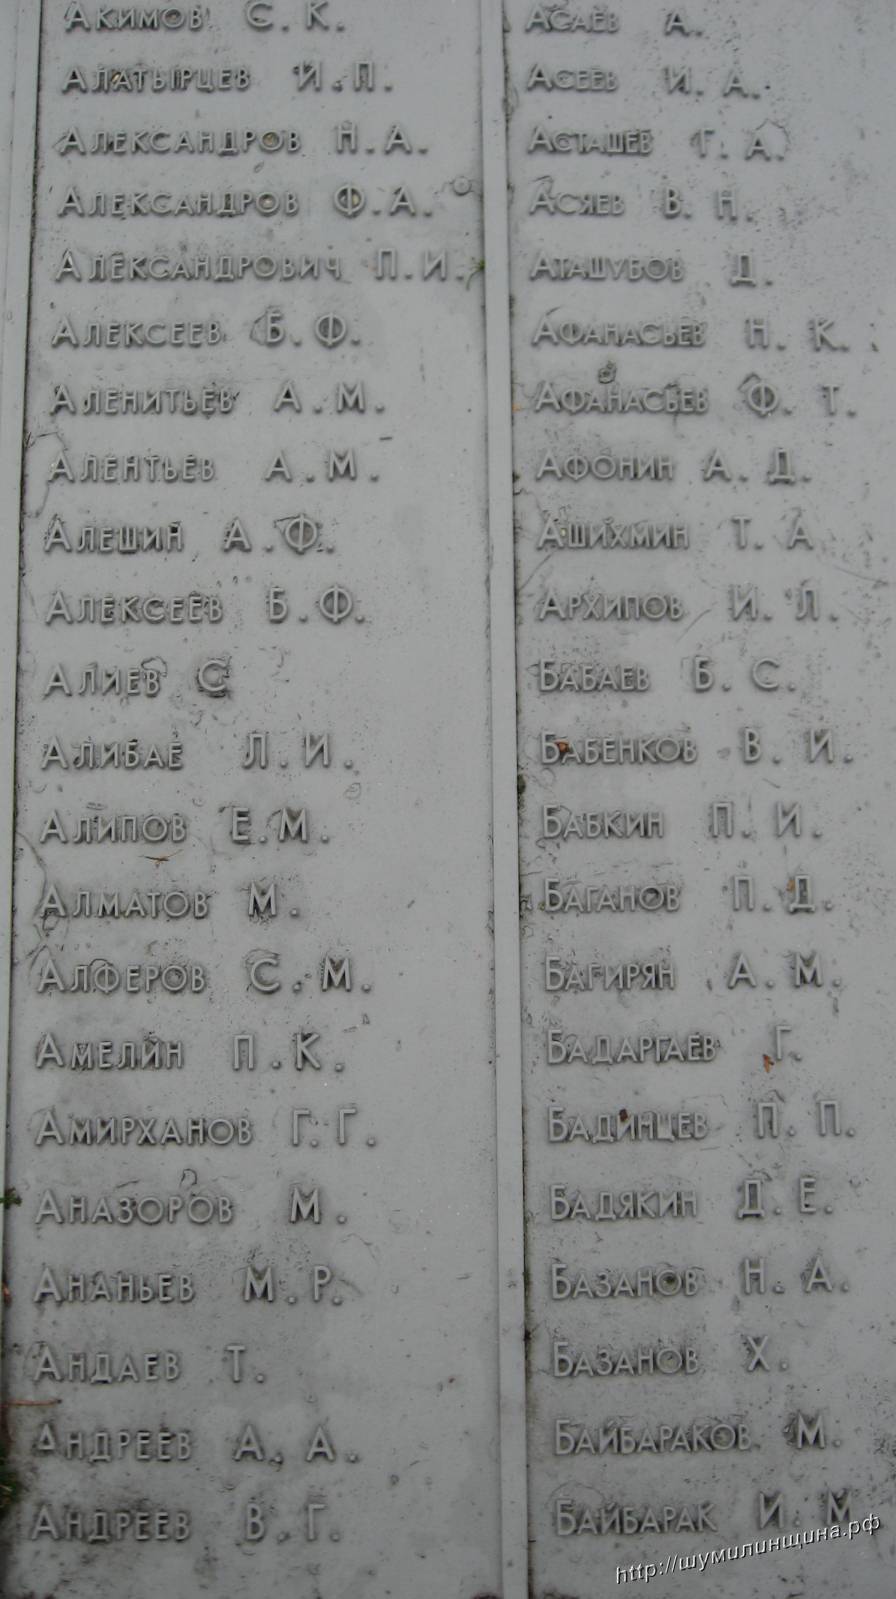 Акимов С.К.
Алатырцев И.П.
Александров Н.А.
Александров Ф.А.
Александрович П.И.
Алексеев Б.Ф.
Аленитьев А.М.
Алентьев А.М.
Алешин А.Ф.
Алексеев Б.Ф.
Алиев С
Алибае Л.И.
Алипов Е.М.
Алматов М.
Алферов С.М.
Амелин П.К.
Амирханов Г.Г.
Аназоров М.
Ананьев М.Р.
Андаев Т.
Андреев А.А.
Андреев В.Г.
Асаев А.
Асеев И.А.
Асташев Г.А.
Асяев В.Н.
Аташубов Д.
Афанасьев Н.К.
Афанасьев Ф.Т.
Афонин А.Д.
Ашихмин Т.А
Архипов И.Л.
Бабаев Б.С.
Бабенков В.И.
Бабкин П.И.
Баганов П.Д.
Багирян А.М.
Бадаргаев Г.
Бадинцев П.П.
Бадякин Д.Е.
Базанов Н.А.
Базанов Х.
Байбараков М.
Байбарак И.М
http://шумилинщина.рф